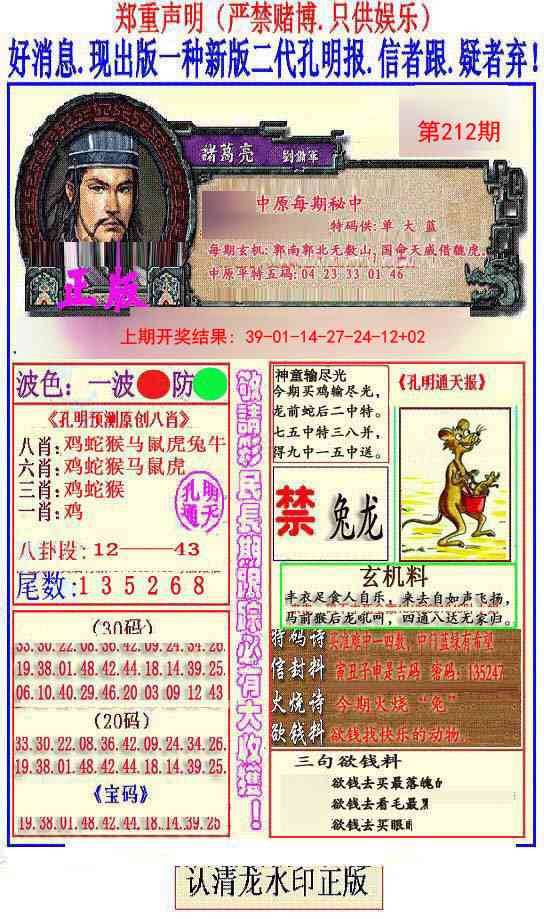 郑重声明（严禁赌博.只供娱乐）
好消息.现出版一种新版二代孔明报.信者跟.疑者弃!
第212期
諸萬亮 劉備軍
中原每期秘中
特码供:单 大 蓝
每期玄机:郭南郭北无数山,国命天威借魏虎.
中原平特五码:04 23 33 01 46
正版
上期开奖结果：39-01-14-27-24-12+02
波色：一波 防
《孔明预测原创八肖》
八肖:鸡蛇猴马鼠虎兔牛
六肖:鸡蛇猴马鼠虎
三肖:鸡蛇猴
一肖:鸡
孔明
通天
八卦段：12——43
尾数:135268
(30码)
33.30.22.08.36.42.09.24.34.26
19.38.01.48.42.44.18.14.39.25
06.10.40.29.46.20 03 09 12 43
(20码)
33.30.22.08.36.42.09.24.34.26.
19.38.01.48.42.44.18.14.39.25
《宝码》
19.38.01.48.42.44.18.14.39.25
敬請彩民長期跟踪必有大收獲！
神童输尽光
今期买鸡输尽光，
龙前蛇后二中特。
七五中特三八并，
得九中一五中送。
《孔明通天报》
禁 兔龙
玄机料
丰衣足食人自乐，来去自如声飞扬，
马前猴后龙吼叫，四通八达无家归。
特码诗 买注庄中一四数，中行蓝绿有希望
信封料 寅丑子申是吉码 密码：135247
火烧诗 今期火烧“兔”
欲钱料 欲钱找快乐的动物.
三句欲钱料
欲钱去买最落魄的
欲钱去看毛最
欲钱去买眼
认清龙水印正版